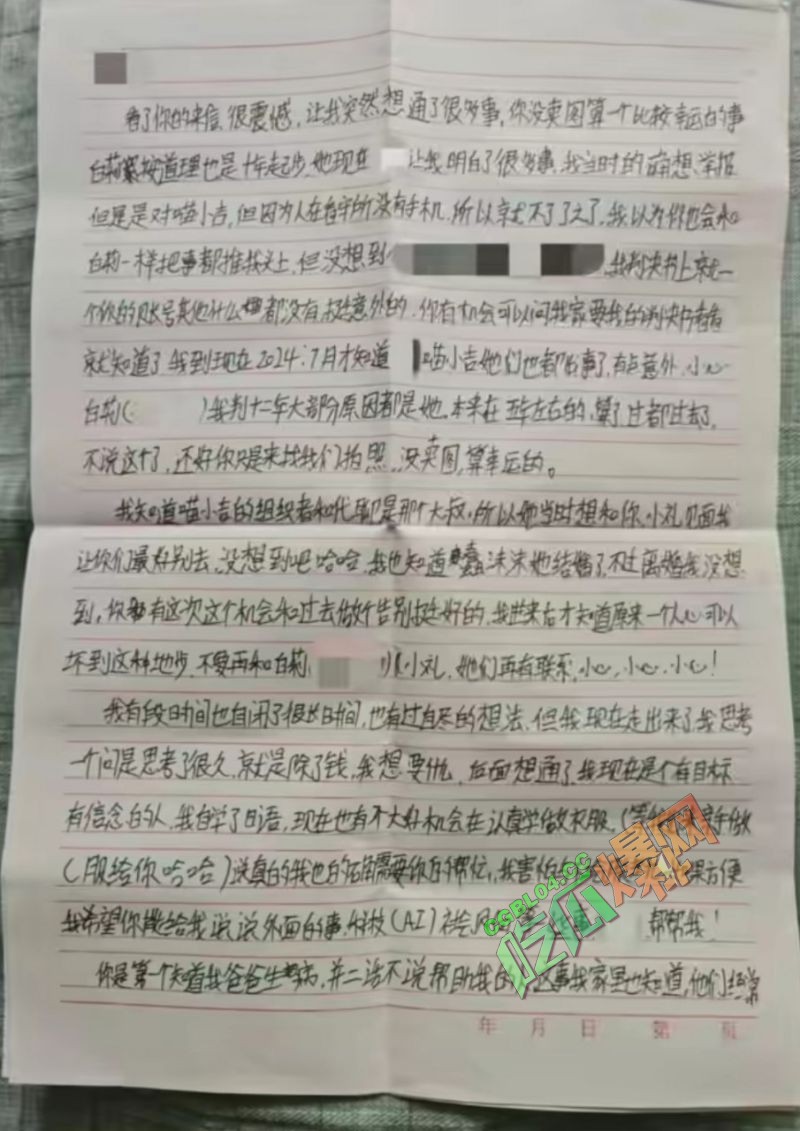 看了你的来信,很震憾,让我突然想通了很多事,你没卖图算一个比较幸运的事
白莉 按道理也是十年起步,她现在 让我明白了很多事,我当时的确想举报
但是是对喵小吉,但因为人在看守所没有手机,所以就不了了之了,我以为你也会和
白莉一样把事都推我头上,但没想到 我判决书上就一
个你的账号其他什么都没有,挺意外的,你有机会可以问我家要我的判决书看看
就知道了,我到现在2024.7月才知道 喵小吉她们也都出事了,有点意外,小心
白莉( )我判十二年大部分原因都是她,本来在 年左右的,算了,过都过去了,
不说这个了,还好你只是来找我们拍照,没卖图,算幸运的。
我知道喵小吉的组织者和代理是那个大叔,所以他当时想和你,小礼见面我
让你们最好别去,没想到吧哈哈,我也知道 沫沫她结婚了,不过离婚我没想
到,你 有这次这个机会和过去做个告别挺好的,我进来后才知道原来一个人心可以
坏到这种地步,不要再和白莉 小礼,她们再有联系,小心,小心,小心!
我有段时间也自闭了很长时间,也有过自尽的想法,但我现在走出来了,我思考
一个问题思考了很久,就是除了钱,我想要什么,后面想通了,我现在是个有目标
有信念的人,我自学了日语,现在也有不大好机会在认真学做衣服,( 做
( 服给你哈哈)说真的我也的确需要你的帮忙,我害怕 方便
我希望你 给我说说外面的事,科技(AI)社会 帮帮我!
你是第一个知道我爸爸生病,并二话不说帮助我的 这事我家里也知道,他们经常
年 月 日 第 页
CGBL04.CC
吃瓜爆网